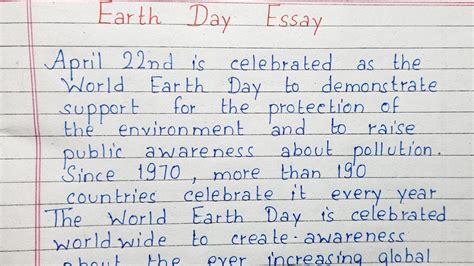 Earth Day Essay
April 22nd is celebrated as the
World Earth Day to demonstrate
support for the protection of
the environment and to raise
public awareness about pollution.
Since 1970, more than 190
countries celebrate it every year
The World Earth Day is celebrated
worldwide to create awareness
about the ever increasing global